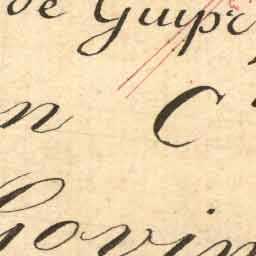 de Guip
n C
Govin